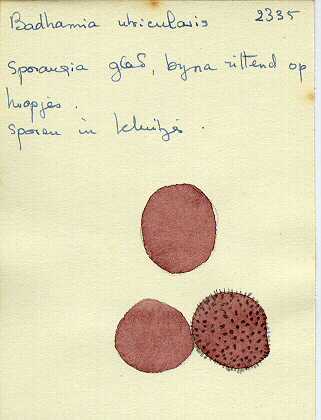 Badhamia utricularis 2335
Sporangia glad, byna zittend op
hoopjes.
Sporen in kluitjes.